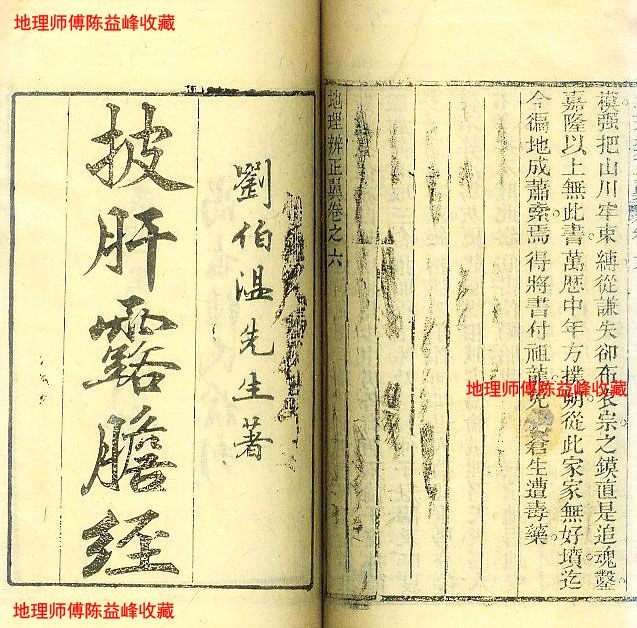 地理师傅陈益峰收藏
模强把山川牢束縛從謙失卻布衣宗之鏌直是追魂鑿
嘉隆以上無此書萬歷中年方撲朔從此家家無好墳迄
今徧地成蕭索焉得將書付祖龍免蒼生遭毒藥
地理辨正翼卷之六
劉伯温先生著
披肝露膽經
地理师傅陈益峰收藏
地理师傅陈益峰收藏